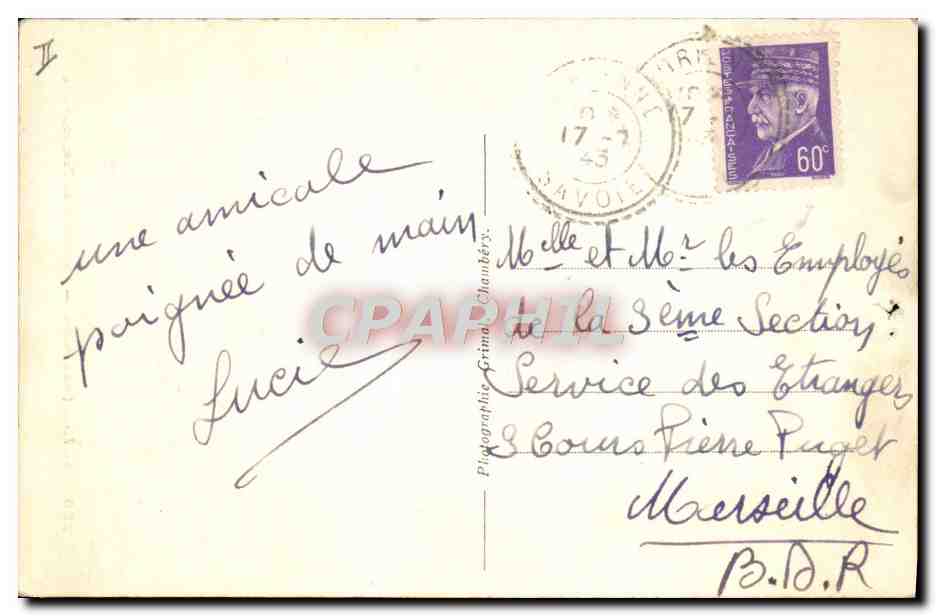 II
une amicale
poignée de main
Lucie
Photographie Grimal, Chambéry.
17 - 7
43
SAVOIE
POSTES FRANÇAISES
60c
Melle et Mr les Employés
de la 3ème Section.
Service des Etrangers
3 Cours Pierre Puget
Marseille
B.D.R
CPAPHIL